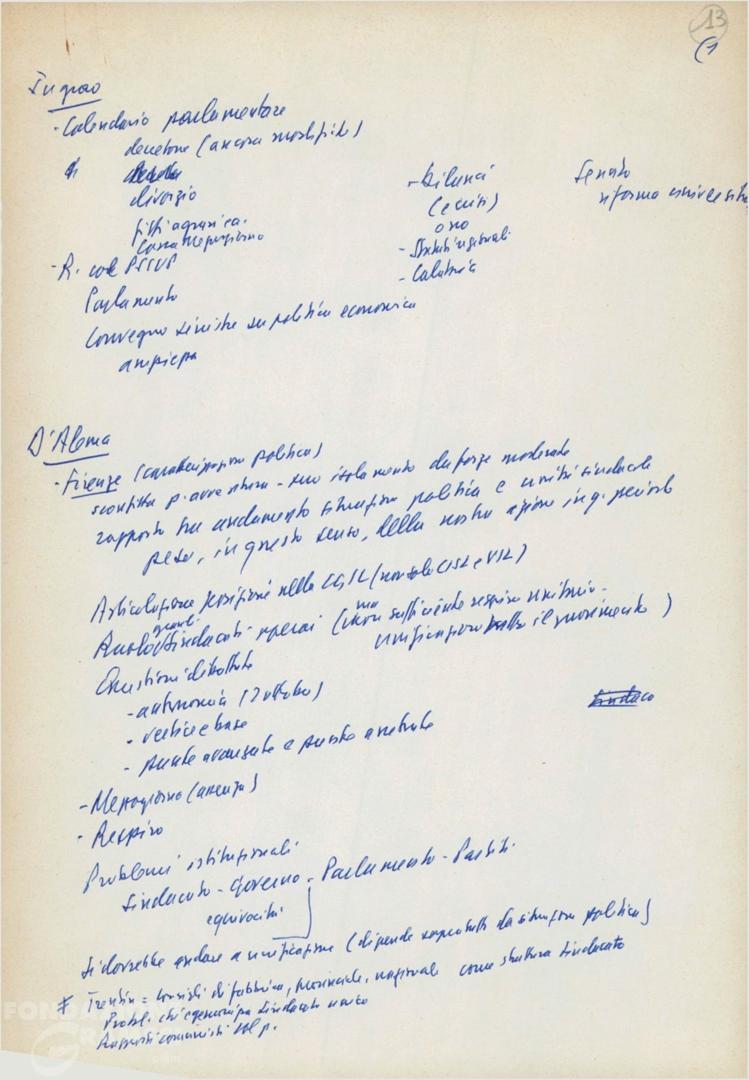 13
(1
Ingrao
- Calendario parlamentare
decretone (ancora modifiche)
divorzio
fitti agrari ca.
Cassa Mezzogiorno
- Bilanci
(e crisi)
- Statuti regionali
- Calabria
Senato
riforma universita
- R. col PSIUP
Parlamento
Convegno sinistre su politica economica
D'Alema
- Firenze (caratterizzazione politica)
sconfitta p. avventura - suo isolamento da forze moderate
rapporto tra andamento situazione politica e unità sindacale
peso, in questo senso, della nostra azione in q. periodo
Articolazione posizioni nella CGIL (non solo CISL e UIL)
Ruolo quadri sindacati operai (ma non sufficiente respiro unitario -
unificazione tutto il movimento)
Questioni dibattute
- autonomia (
- vertice e base
- punte avanzate e punte arretrate
Sindaco
- Mezzogiorno (assenza)
- Respiro
Problemi istituzionali
Sindacato - Governo - Parlamento - Partiti.
equivocità
Si dovrebbe andare a unificazione (dipende soprattutto da situazione politica)
# Trentin = consigli di fabbrica, provinciale, nazionale come struttura sindacato
Probl. chi egemonizza sindacato unico
Rapporti comunisti
FONDAZIONE
GRAMSCI